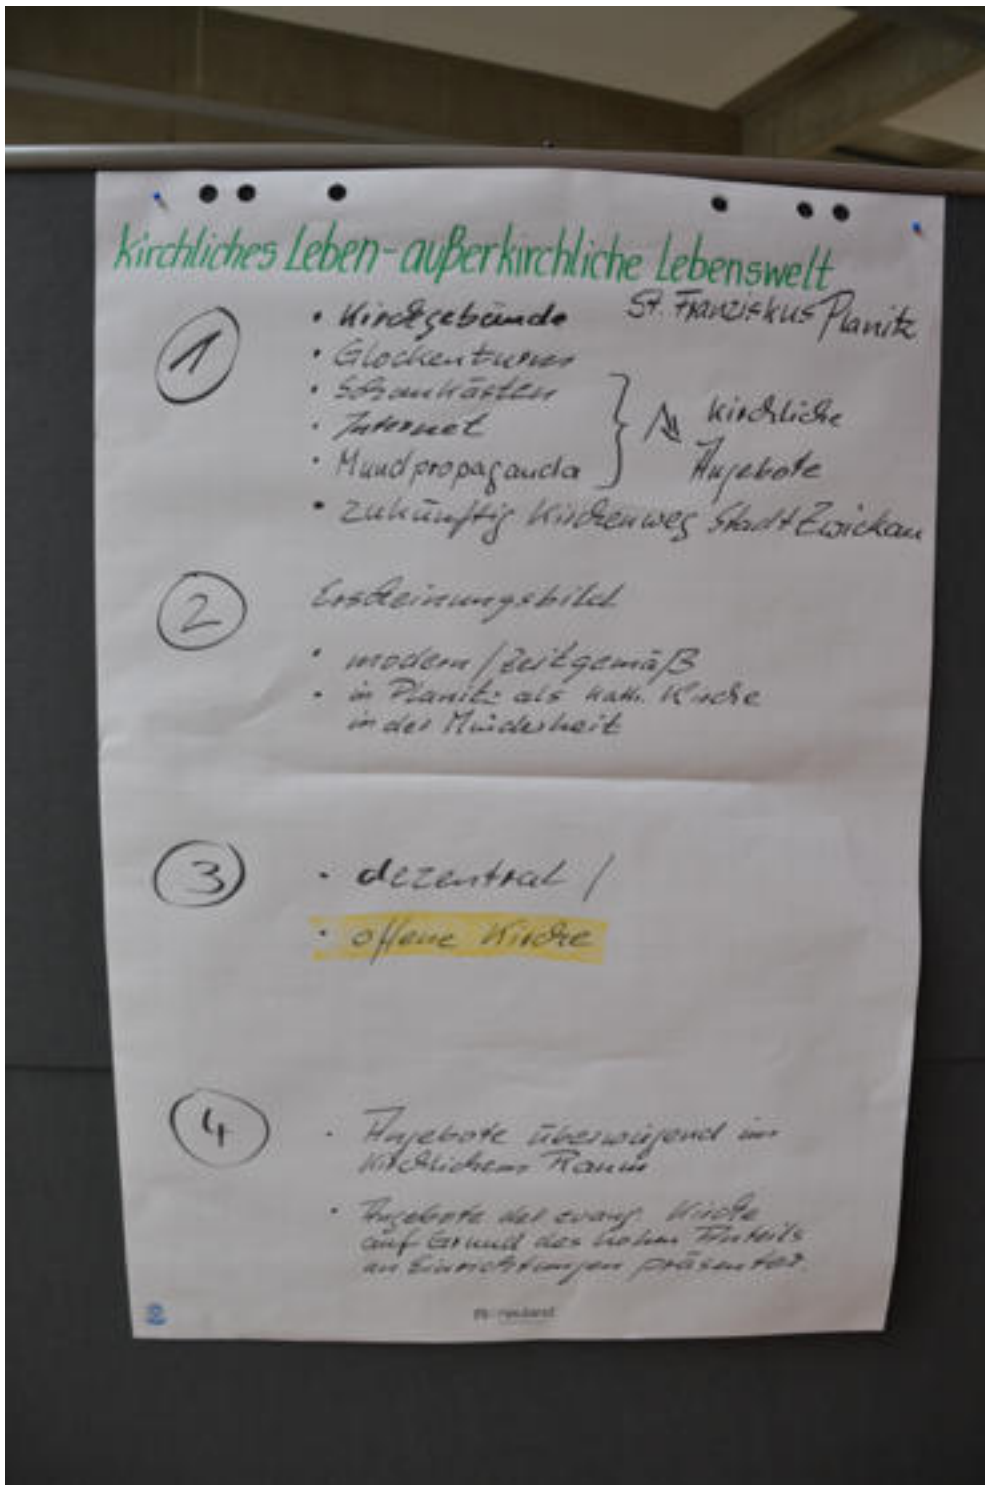 Kirchliches Leben - außerkirchliche Lebenswelt
St. Franziskus Planitz
1
• Kirchgebäude
• Glockenturm
• Schaukästen
• Internet
• Mundpropaganda
kirchliche
Angebote
• zukünftig Kirchenweg Stadt Zwickau
2
Erscheinungsbild
• modern / zeitgemäß
• in Planitz als kath. Kirche
in der Minderheit
3
• dezentral /
• offene Kirche
4
• Angebote überwiegend im
kirchlichem Raum
• Angebote der evang. Kirche
auf Grund des hohen Anteils
an Einrichtungen präsenter.
neuland